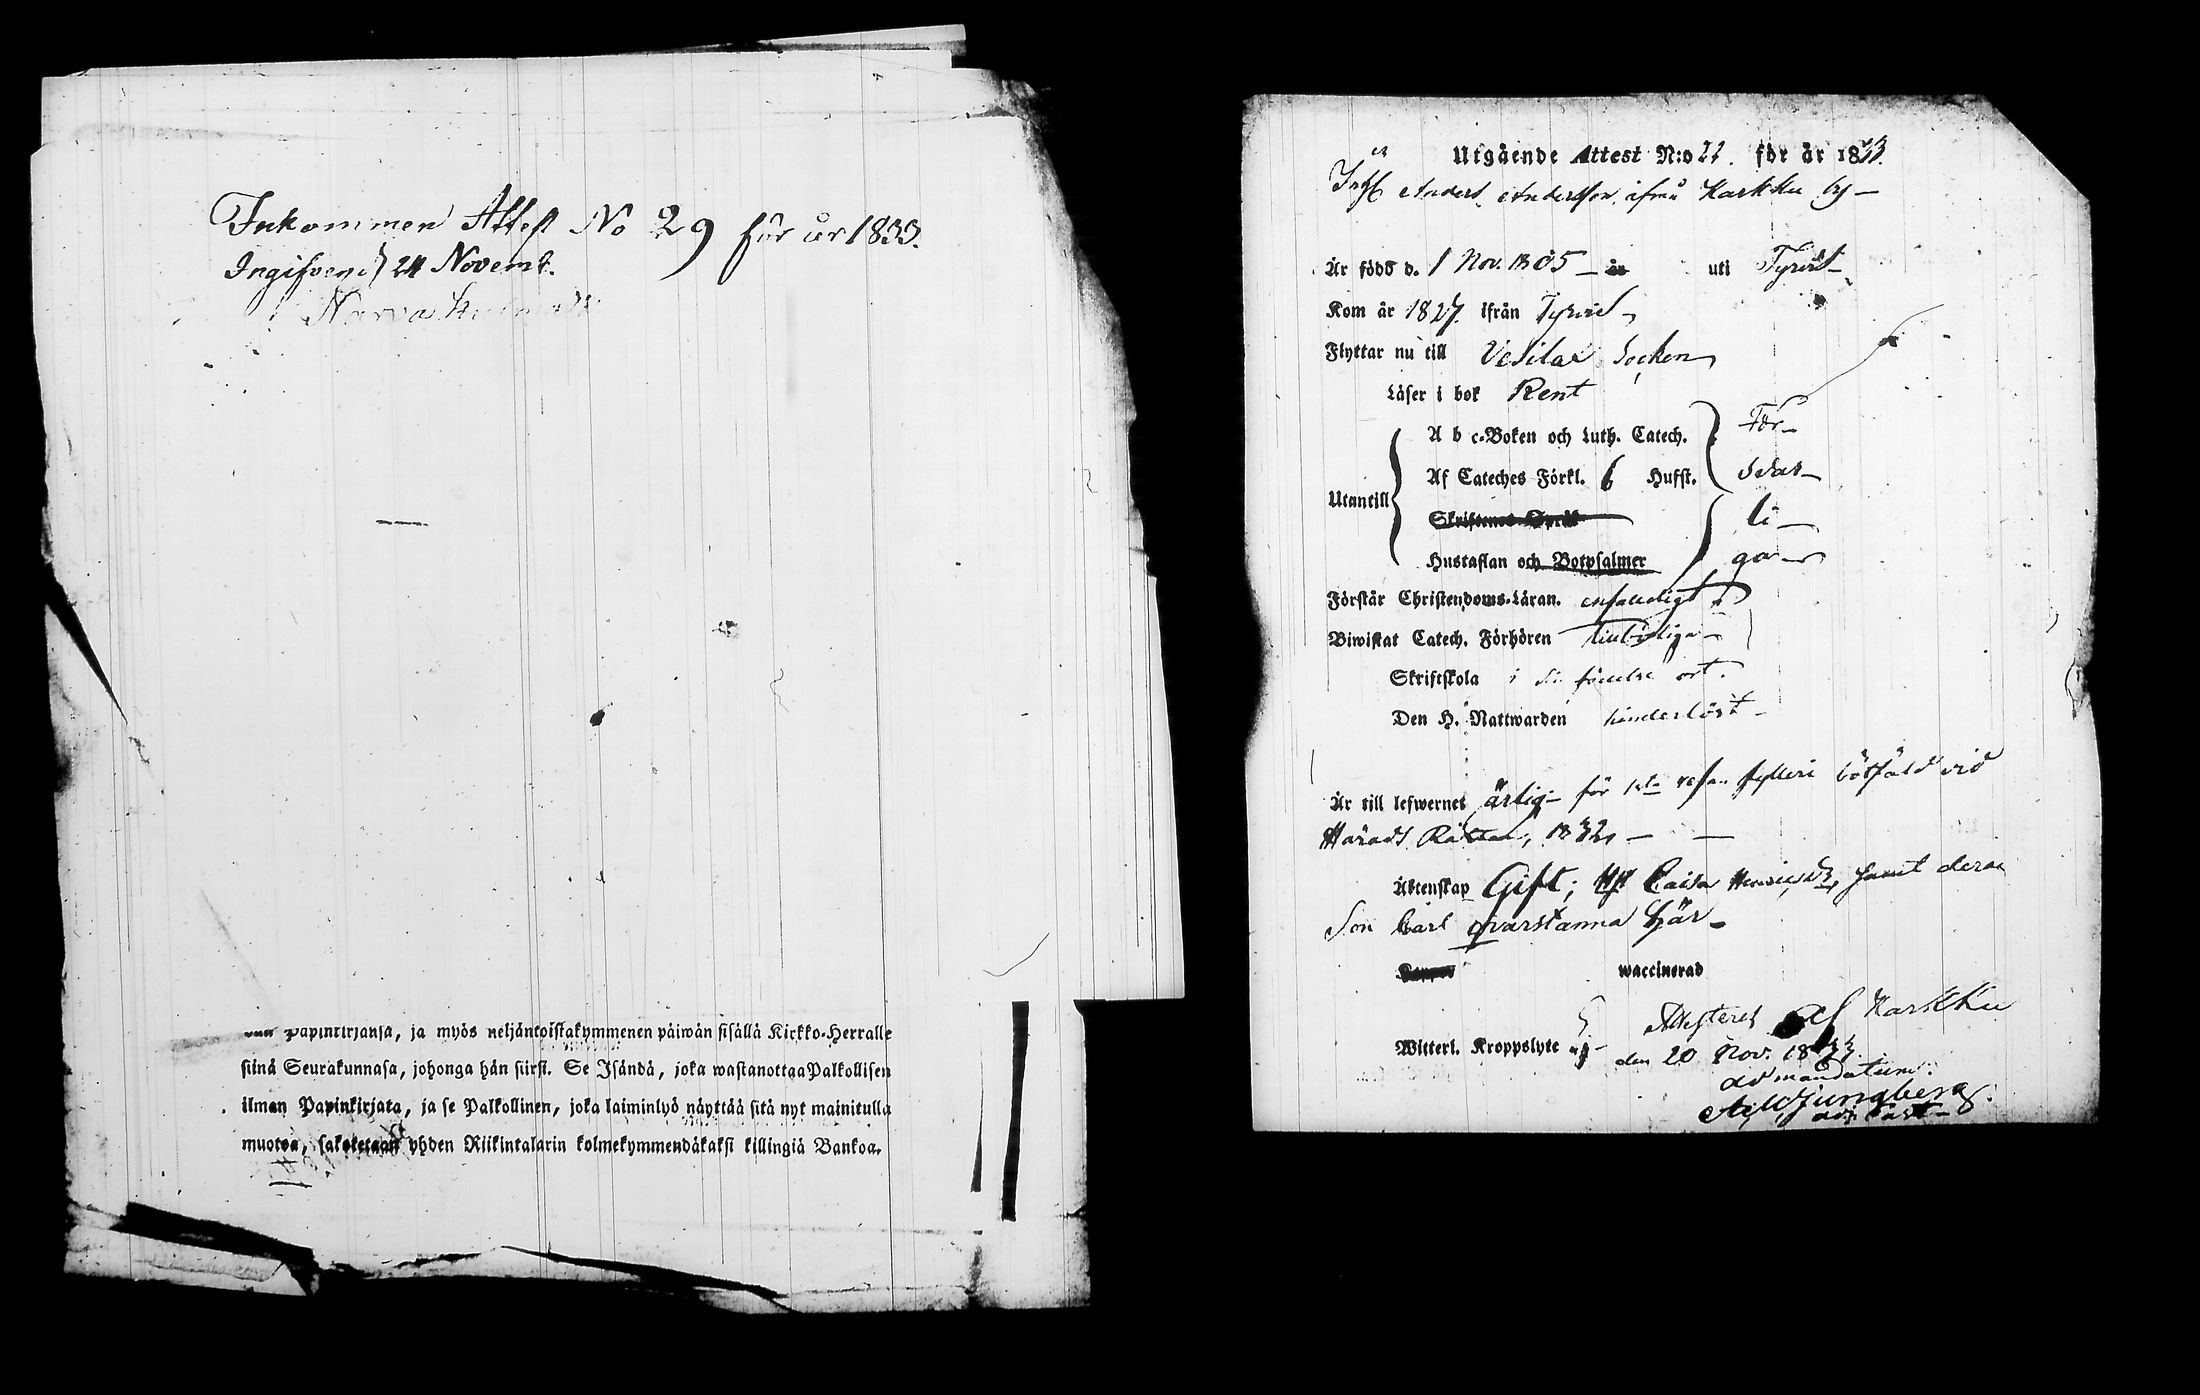 Inkommen Attest No 29 för år 1833.
Ingifven d 24 Novemb.
papinkirjansa, ja myös neljäntoistakymmenen päiwän sisällä Kirkko-Herralle
siinä Seurakunnasa, johonga hän siirsi. Se Isändä, joka wastanottaa Palkollisen
ilman Papinkirjata, ja se Palkollinen, joka laiminlyö näyttää sitä nyt mainitulla
muotoa, sakotetaan yhden Riikintalarin kolmekymmendäkaksi killingiä Bankoa.
Utgående Attest N:o 22. för år 1833.
Anders Andersson ifrån Karkku by
Är född d. 1 Nov. 1805 uti Tyrvis
Kom år 1827 ifrån Tyrvis
Flyttar nu till Vesilax Socken
Läser i bok Rent
A b c-Boken och Luth. Catech. För-
Af Cateches Förkl. 6 Hufst. svar-
Utantill
Skriftenes Språk li-
Hustaflan och Botpsalmer ga
Förstår Christendoms-Läran. enfaldigt
Biwistat Catech. Förhören
Skriftskola i sin födelse ort.
Den H. Nattwarden hinderlöst
Är till lefwernet ärlig för 1sta resan fylleri bötfäld vid
Härads Rätten, 1832
Äktenskap Gift; Caisa samt deras
Son Carl qvarstanna här
waccinerad
Attesteras af Karkku
Witterl. Kroppslyte den 20 Nov. 1833
ad mandatum.
Ljungberg.